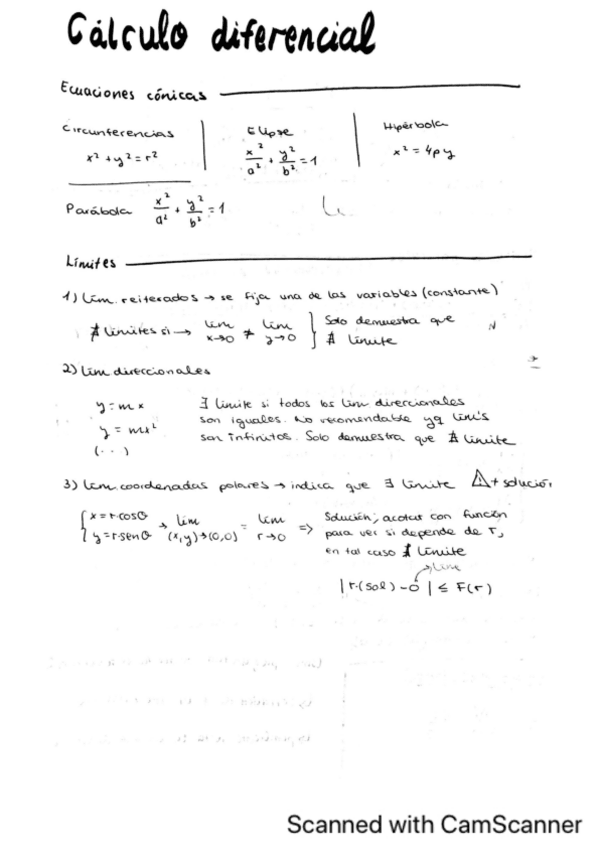 Cálculo diferencial
Ecuaciones cónicas
Circunferencias
x² + y² = r²
Elipse
x²/a² + y²/b² = 1
Hipérbola
x² = 4py
Parábola x²/a² + y²/b² = 1
Límites
1) Lím. reiterados → se fija una de las variables (constante)
∄ límites si → lím x→0 ≠ lím y→0 } Solo demuestra que ∄ límite
2) Lím direccionales
y = mx
y = mx²
(...)
∃ límite si todos los lím direccionales
son iguales. No recomendable yq lím's
son infinitos. Solo demuestra que ∄ límite
3) Lím. coordenadas polares → indica que ∃ límite ⚠ + solución
{ x = r·cosθ
y = r·senθ → lím (x,y)→(0,0) = lím r→0 =>
Solución; acotar con función
para ver si depende de r,
en tal caso ∄ límite
lím
| r·(sol) - 0 | ≤ F(r)
Scanned with CamScanner